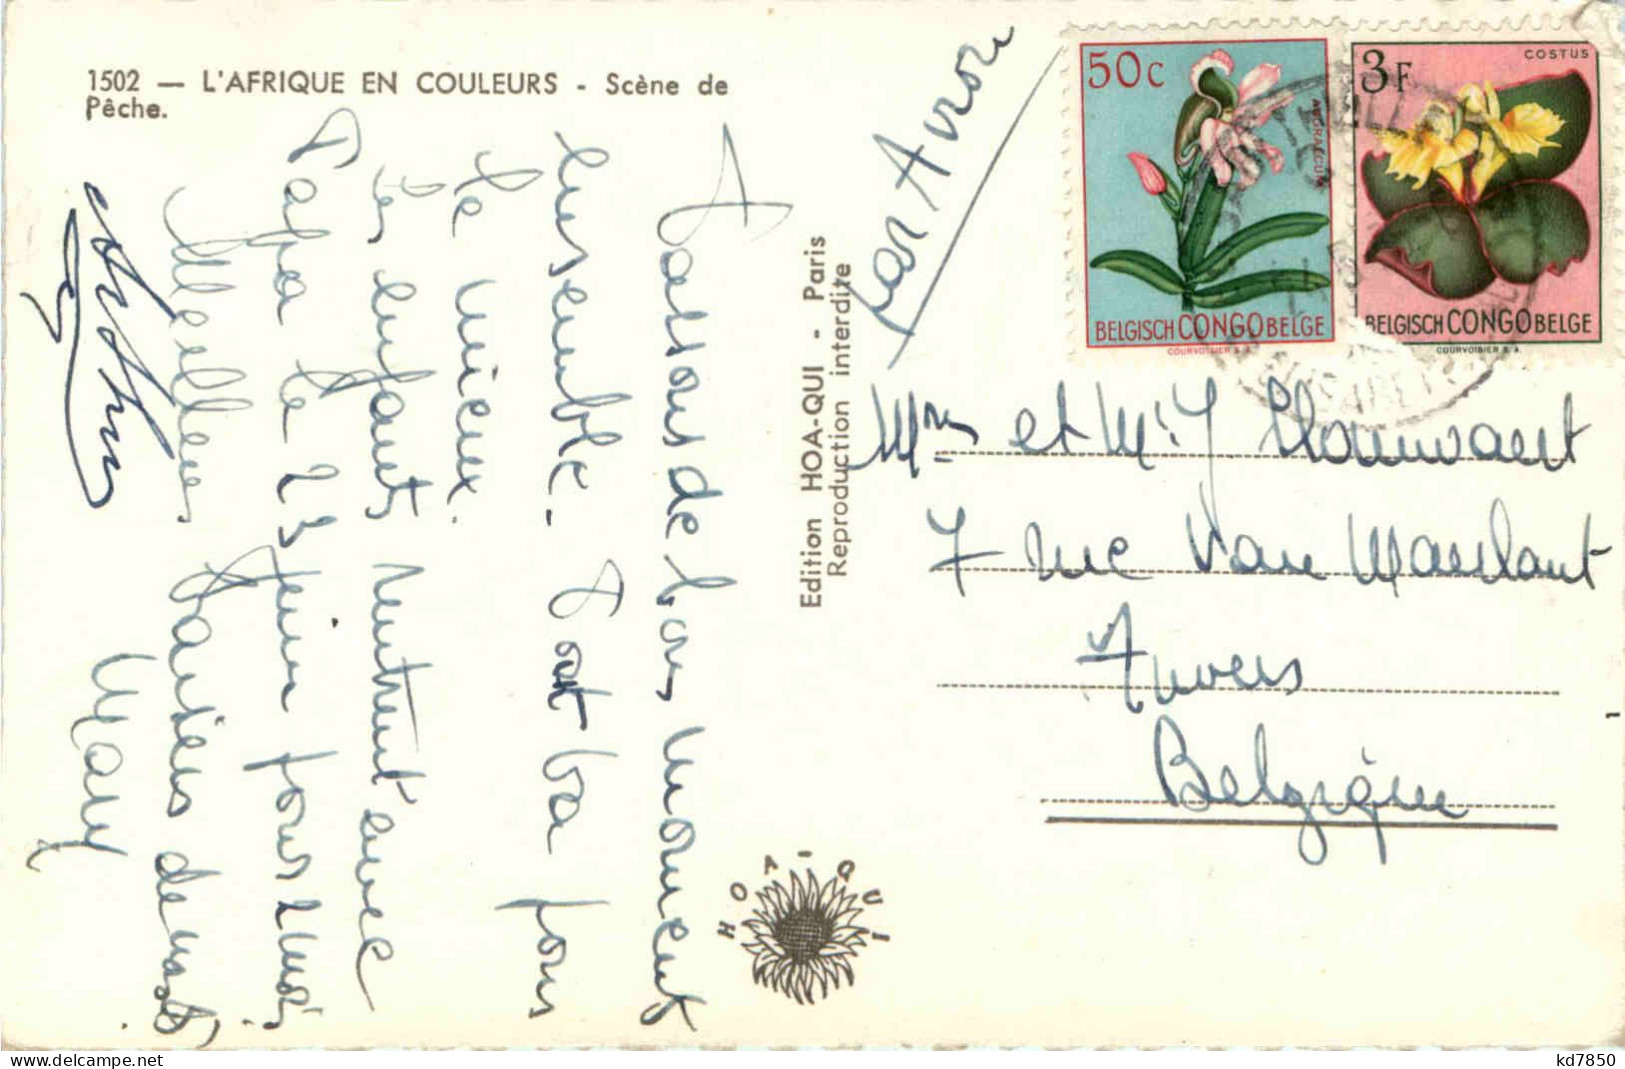 1502 — L'AFRIQUE EN COULEURS - Scène de
Pêche.
Passons de bons moments
ensemble. Tout va pour
le mieux.
Les enfants rentrent avec
Papa le 23 juin pour 2 mois
Meilleurs baisers de nous
Mary
Edition HOA-QUI - Paris
Reproduction interdite
par Avion
50c
AUORANTUM
BELGISCH CONGO BELGE
COURVOISIER S.A.
3F
COSTUS
BELGISCH CONGO BELGE
COURVOISIER S.A.
Mme et Mr J
7 rue Van Maerlant
Anvers
Belgique
HOA-QUI
www.delcampe.net
kd7850